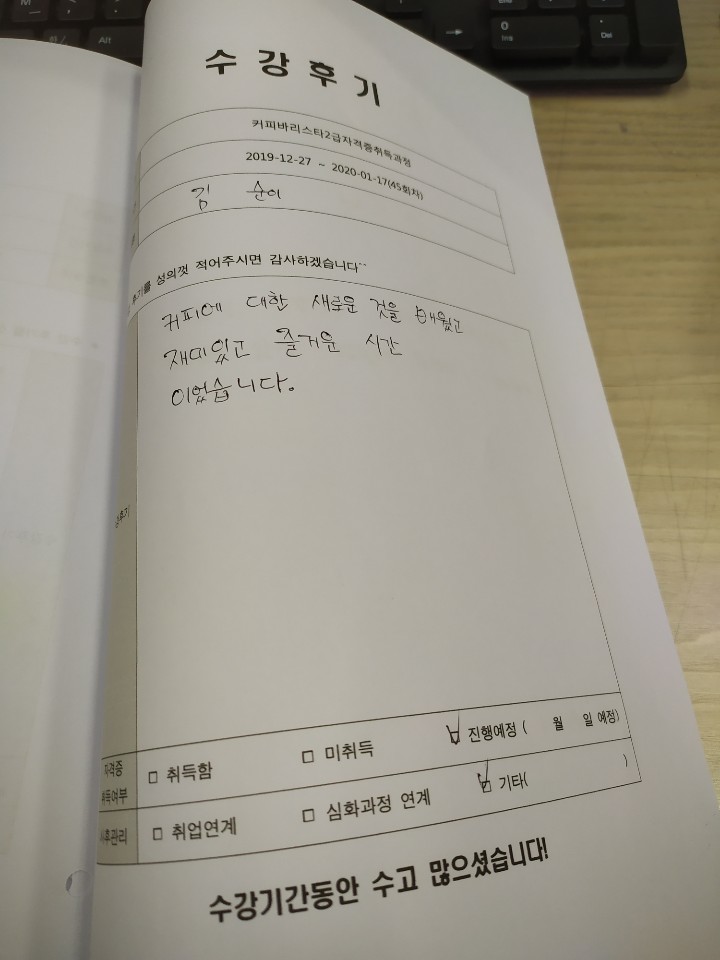 수강후기
커피바리스타2급자격증취득과정
2019-12-27 ~ 2020-01-17(45회차)
김 순이
후기를 성의껏 적어주시면 감사하겠습니다^^
커피에 대한 새로운 것을 배웠고
재미있고 즐거운 시간
이었습니다.
강후기
자격증 취득여부 □ 취득함 □ 미취득 ☑ 진행예정 ( 월 일 예정)
사후관리 □ 취업연계 □ 심화과정 연계 ☑ 기타( )
수강기간동안 수고 많으셨습니다!
0
Ins
.
Del
Alt